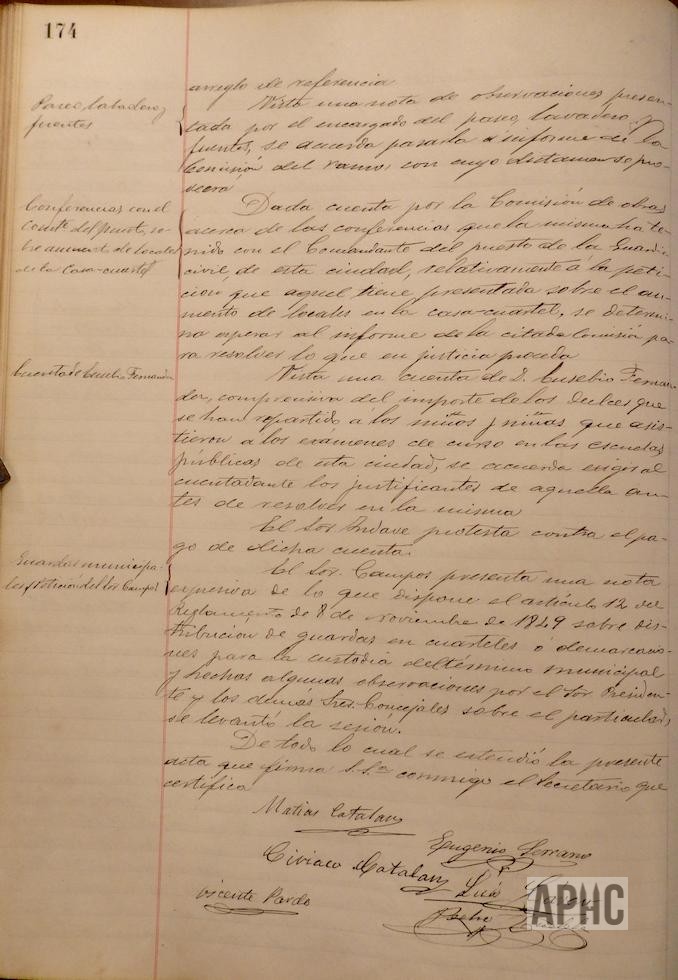 174
arreglo de referencia
Paseo, labadero y
fuentes
Vista una nota de observaciones presen-
tada por el encargado del paseo, lavadero y
fuentes, se acuerda pasarla á informe de la
Comisión del ramo, con cuyo dictamen se pro-
veerá
Conferencias con el
Comte. del puesto, so-
bre aumento de locales
de la Casa-cuartel
Dada cuenta por la Comisión de obras
acerca de las conferencias que la misma ha te-
nido con el Comandante del puesto de la Guardia
civil, de esta ciudad, relativamente á la peti-
ción que aquel tiene presentada sobre el au-
mento de locales en la casa-cuartel, se determi-
na esperar al informe de la citada Comisión pa-
ra resolver lo que en justicia proceda
Cuenta de Eusebio Fernandez
Vista una cuenta de D. Eusebio Fernan-
dez, comprensiva del importe de los dulces que
se han repartido á los niños y niñas que asis-
tieron á los exámenes de curso en las escuelas
públicas de esta ciudad, se acuerda exigir al
cuentadante los justificantes de aquella an-
tes de resolver en la misma
El Sor. Indave protesta contra el pa-
go de dicha cuenta.
Guardas municipa-
les y Petición del Sor. Campos
El Sor. Campos presenta una nota
expresiva de lo que dispone el artículo 12 del
Reglamento de 8 de noviembre de 1849 sobre dis-
tribución de guardas en cuarteles ó demarcacio-
nes para la custodia del término municipal
y hechas algunas observaciones por el Sor. Presiden-
te y los demás Sres. Concejales sobre el particular,
se levantó la sesión.
De todo lo cual se extendió la presente
acta que firma S. Sa. conmigo el Secretario que
certifica
Matias Catalan
Eugenio Serrano
Ciriaco Catalan
Luis
Vicente Pardo
Pedro
APHC